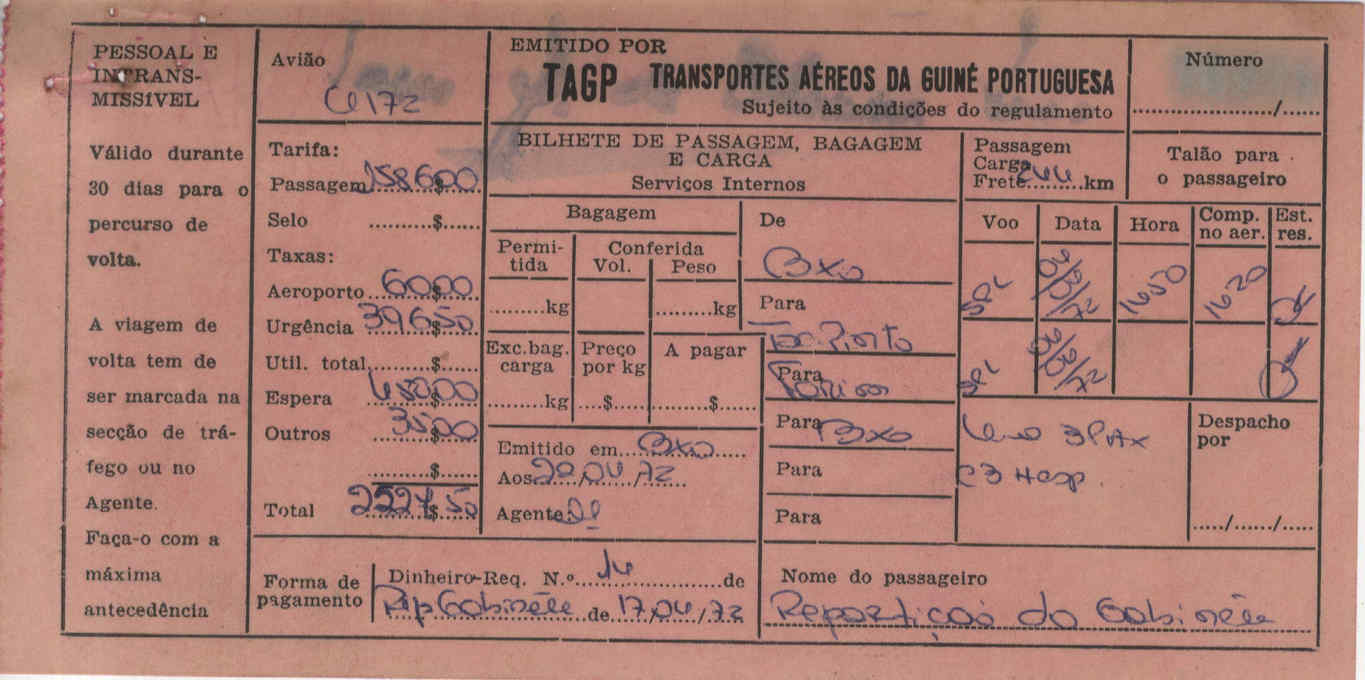 PESSOAL E
INTRANS-
MISSÍVEL
Válido durante
30 dias para o
percurso de
volta.
A viagem de
volta tem de
ser marcada na
secção de trá-
fego ou no
Agente.
Faça-o com a
máxima
antecedência
Avião
Tarifa:
Passagem 158600
Selo ..........$......
Taxas:
Aeroporto 6000
Urgência 39650
Util. total ..........$......
Espera
Outros 3500
..........$......
Total 222750
EMITIDO POR
TAGP TRANSPORTES AÉREOS DA GUINÉ PORTUGUESA
Sujeito às condições do regulamento
Número
............../......
BILHETE DE PASSAGEM, BAGAGEM
E CARGA
Serviços Internos
Passagem
Carga
Frete 244 km
Talão para
o passageiro
Bagagem
Permi-
tida
Conferida
Vol. Peso
.........kg .........kg
Exc.bag.
carga
Preço
por kg
A pagar
.........kg ....$...... ........$......
Emitido em Bxo
Aos 20/04/72
Agente
De
Bxo
Para
Para
Para Bxo
Para
Para
Voo Data Hora Comp.
no aer. Est.
res.
SPL 1650 1620
SPL
3 PAX
Despacho
por
...../....../.....
Forma de
pagamento
Dinheiro-Req. N.º 14 de
Rep Gabinete de 17/04/72
Nome do passageiro
Repartição do Gabinete